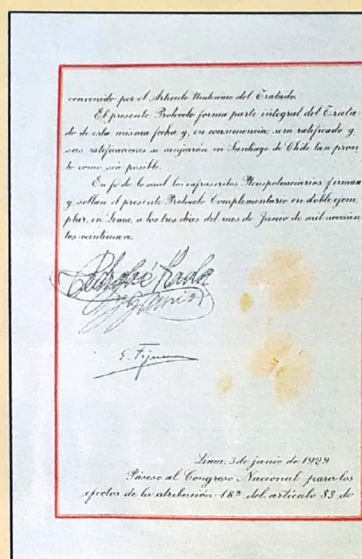 convenido por el Artículo Undécimo del Tratado.
El presente Protocolo forma parte integral del Trata-
do de esta misma fecha y, en consecuencia, será ratificado y
sus ratificaciones se canjearán en Santiago de Chile tan pron-
to como sea posible.
En fe de lo cual los infrascritos Plenipotenciarios firman
y sellan el presente Protocolo Complementario en doble ejem-
plar, en Lima, a los tres días del mes de Junio de mil novecien-
tos veintinueve.
Lima, 3 de junio de 1929
Pásese al Congreso Nacional para los
efectos de la atribución 18ª del artículo 83 de